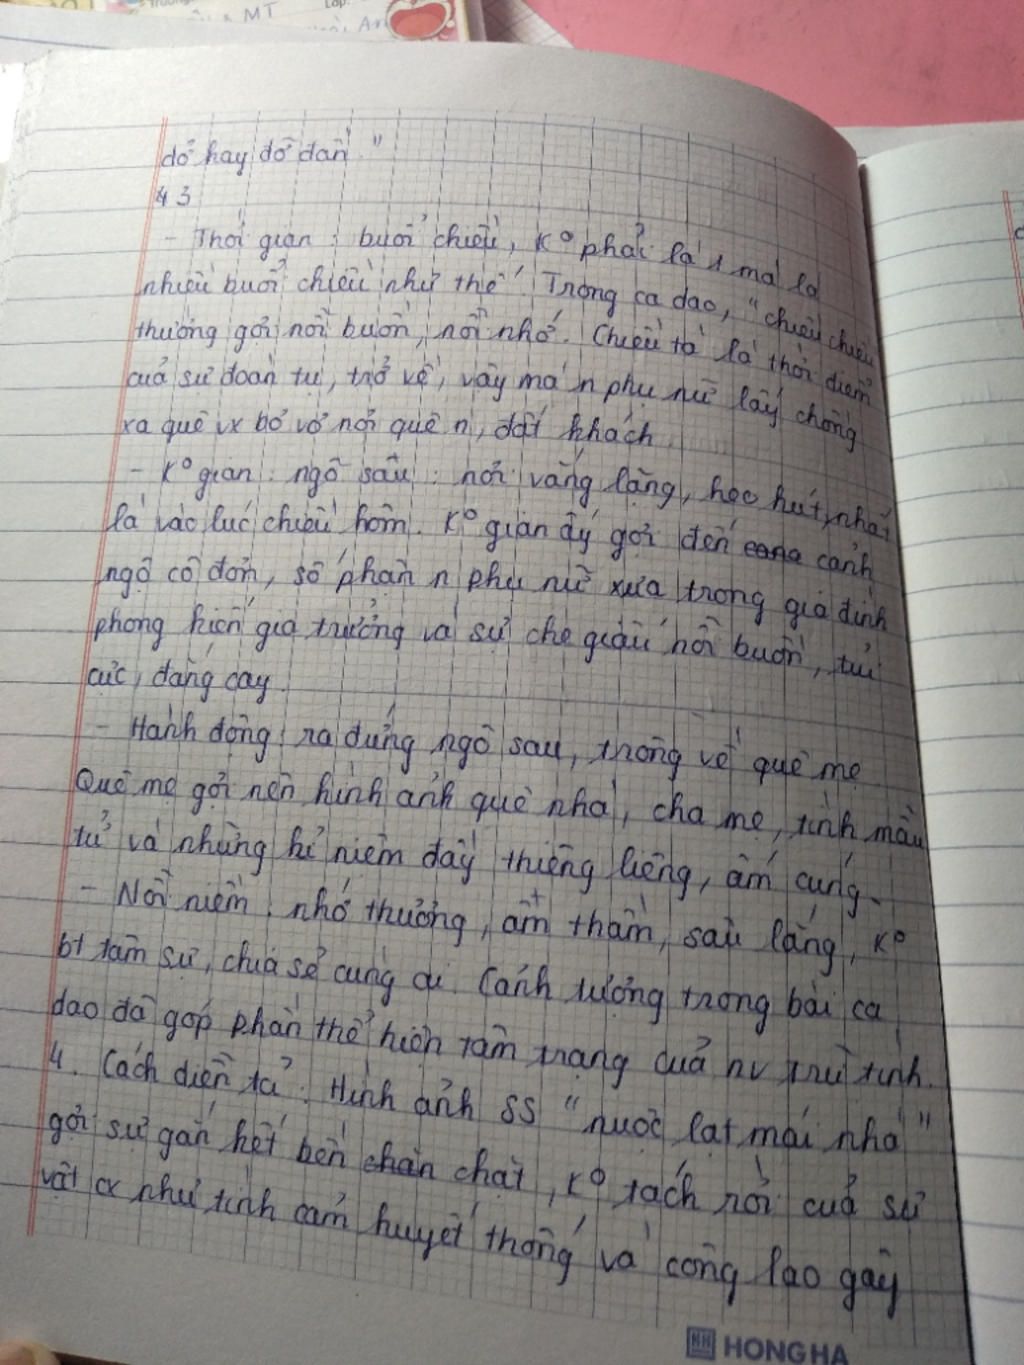 MT
đỏ hay đổ đần."
4 3
- Thời gian: buổi chiều, k° phải là 1 mà là
nhiều buổi chiều như thế. Trong ca dao, "chiều chiều
thường gợi nỗi buồn, nỗi nhớ. Chiều tà là thời điểm
của sự đoàn tụ, trở về, vậy mà n phụ nữ lấy chồng
xa quê vx bơ vơ nơi quê n, đất khách.
- K° gian: ngõ sau: nơi vắng lặng, heo hút, nhất
là vào lúc chiều hôm. K° gian ấy gợi đến cảnh
ngộ cô đơn, số phận n phụ nữ xưa trong gia đình
phong kiến gia trưởng và sự che giấu nỗi buồn, tủi
cực, đắng cay.
- Hành động: ra đứng ngõ sau, trông về quê mẹ
Quê mẹ gợi nên hình ảnh quê nhà, cha mẹ, tình mẫu
tử và những kỉ niệm đầy thiêng liêng, ấm cúng.
- Nỗi niềm: nhớ thương, âm thầm, sâu lắng, k°
bt tâm sự, chia sẻ cùng ai. Cảnh tượng trong bài ca
dao đã góp phần thể hiện tâm trạng của nv trữ tình.
4. Cách diễn tả: Hình ảnh SS "nuộc lạt mái nhà"
gợi sự gắn kết bền chặt, k° tách rời của sự
vật cx như tình cảm huyết thống và công lao gây
HONG HA